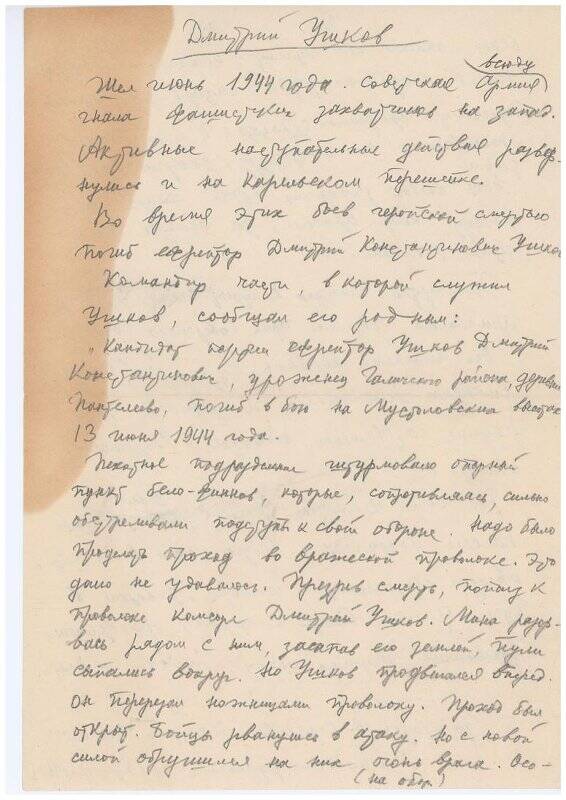 Дмитрий Ушков
всюду
Шел июнь 1944 года. Советская Армия
гнала фашистских захватчиков на запад.
Активные наступательные действия развер-
нулись и на Карельском перешейке.
Во время этих боев геройской смертью
погиб ефрейтор Дмитрий Константинович Ушков
Командир части, в которой служил
Ушков, сообщал его родным:
"Кандидат партии ефрейтор Ушков Дмитрий
Константинович, уроженец Галичского района, деревни
Пантелеево, погиб в бою на Мустоловских высотах
13 июня 1944 года.
Пехотное подразделение штурмовало опорный
пункт бело-финнов, которые, сопротивляясь, сильно
обстреливали подступы к своей обороне. Надо было
проделать проход во вражеской проволоке. Это
дало не удавалось. Презрив смерть, пополз к
проволоке Дмитрий Ушков. Мина разор-
валась рядом с ним, засыпав его землей, пули
сыпались вокруг. Но Ушков продвигался вперед.
Он перерезал ножницами проволоку. Проход был
открыт. Бойцы рванулись в атаку. Но с новой
силой обрушился на них огонь врага. Осо-
(на обор.)